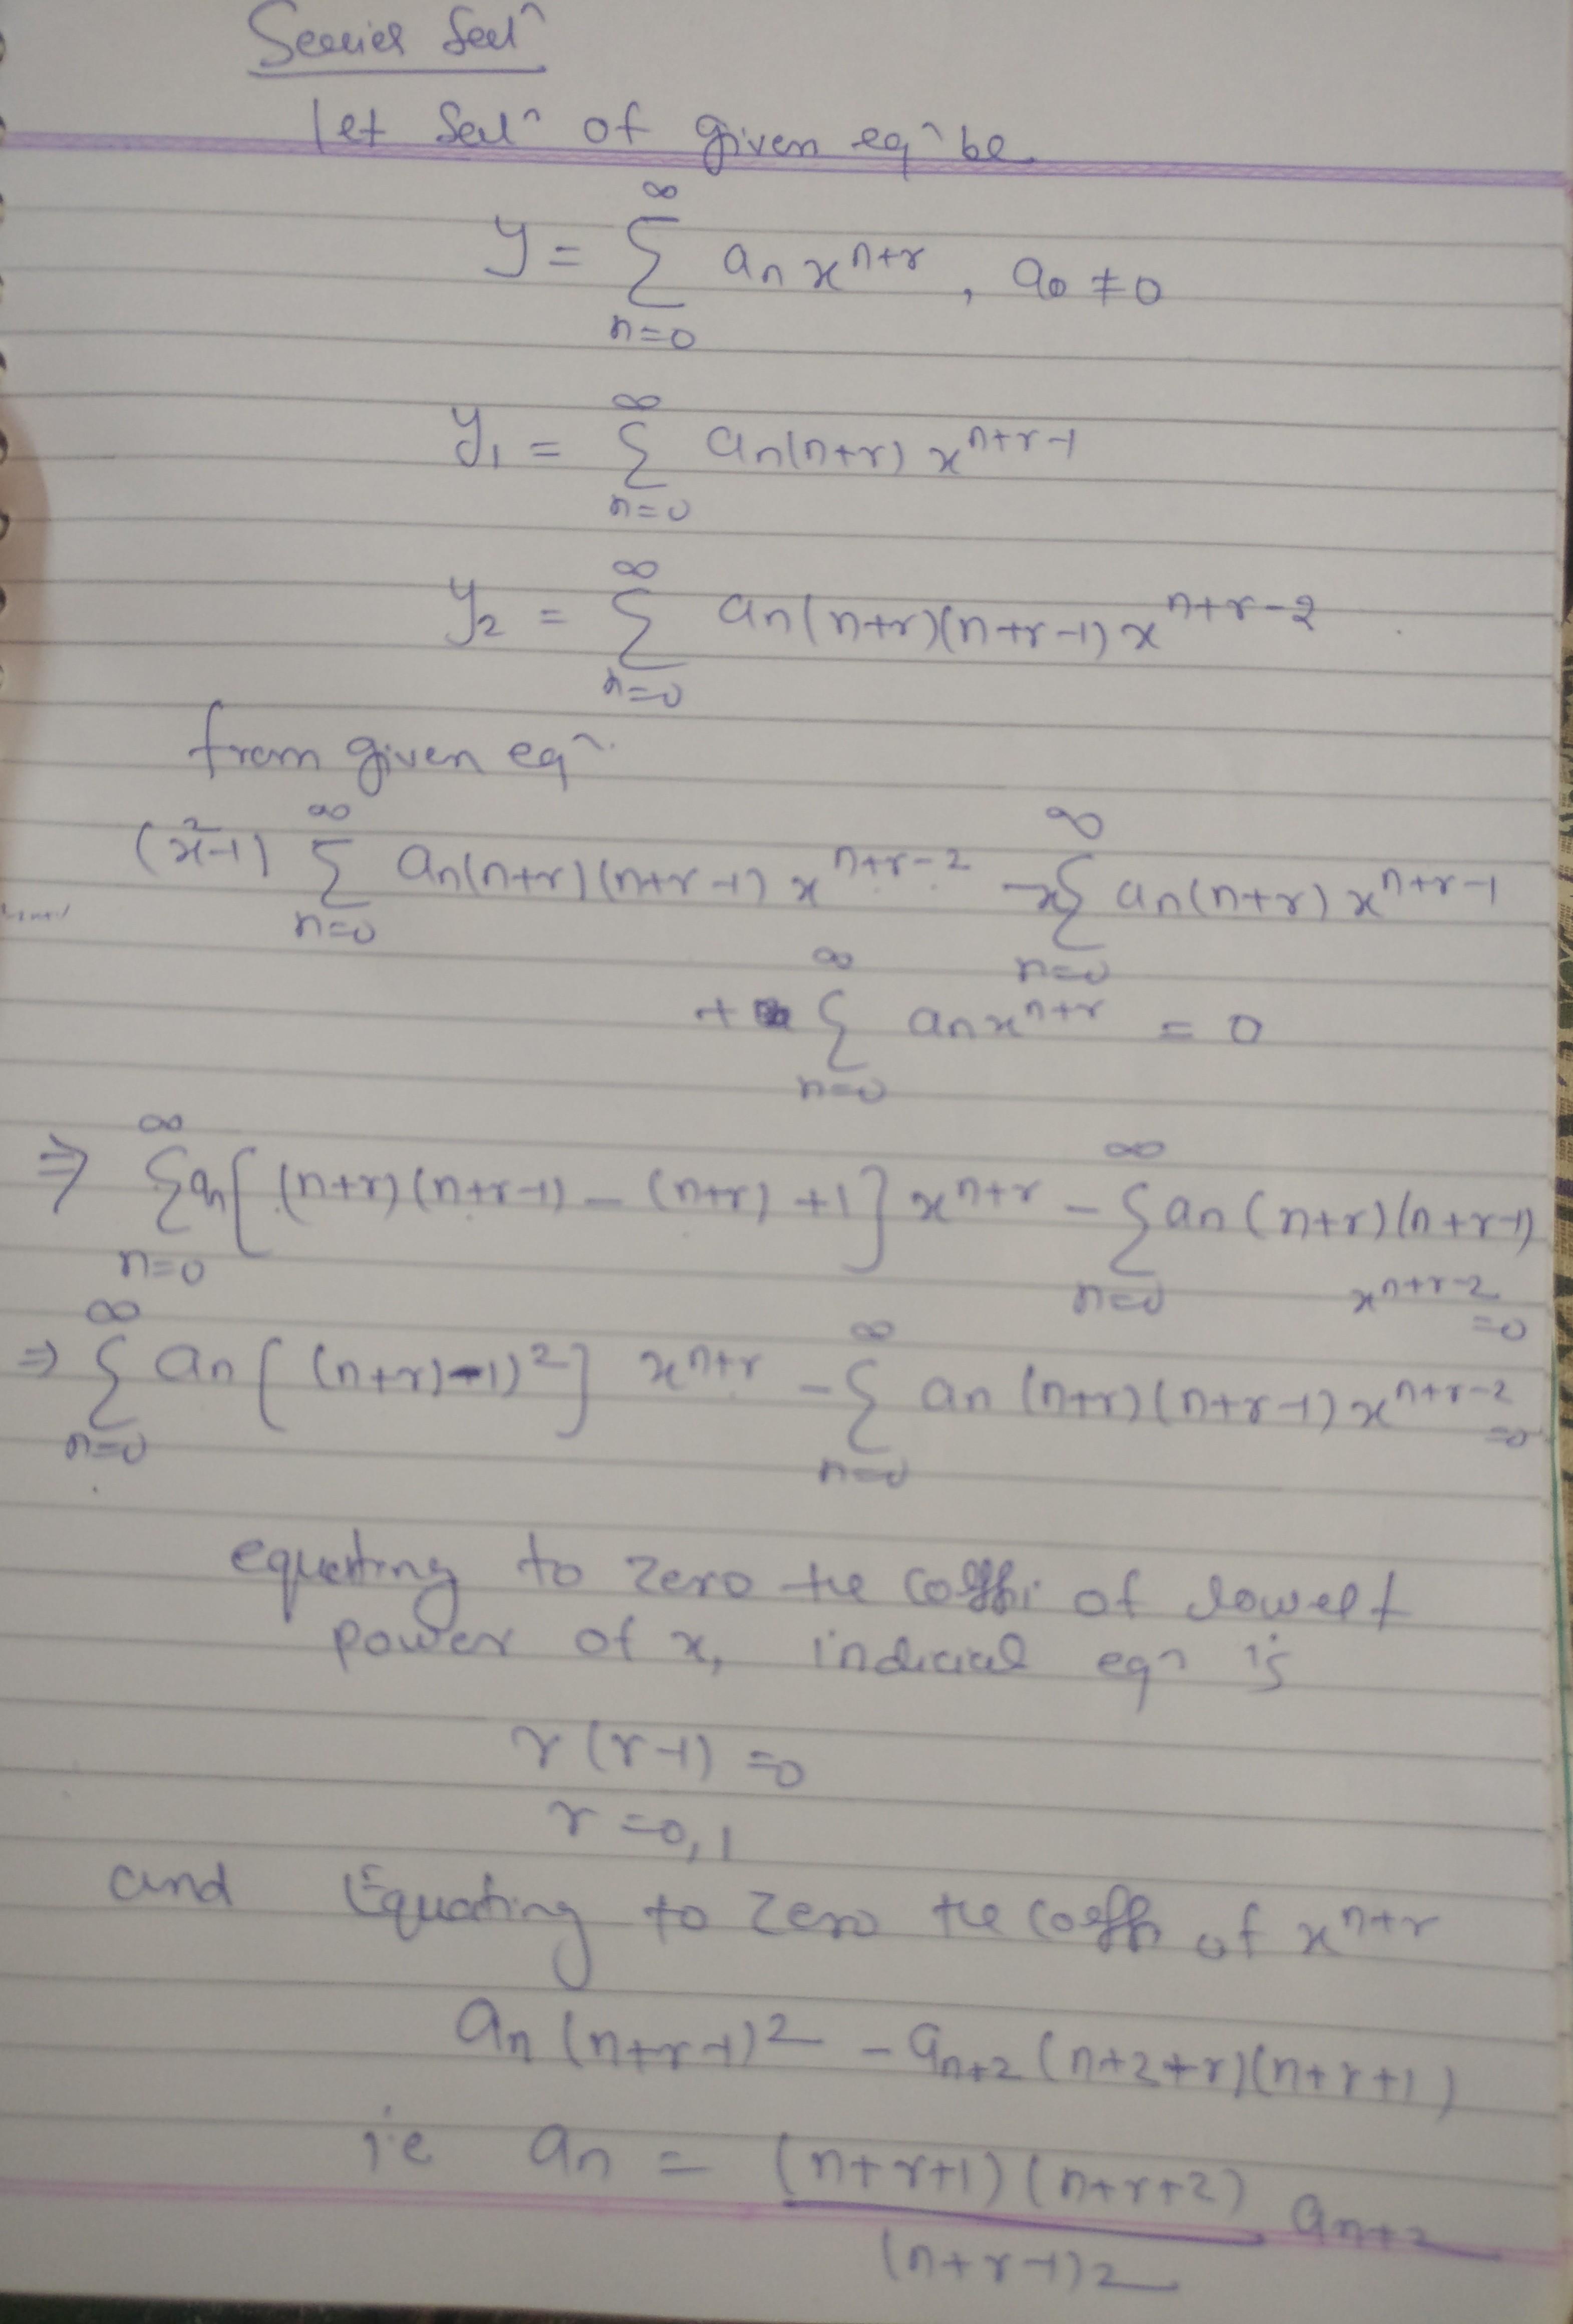 Series Solⁿ
let Solⁿ of given eqⁿ be
y = ∞ Σ n=0 aₙ xⁿ⁺ʳ , a₀ ≠ 0
y₁ = ∞ Σ n=0 aₙ(n+r) xⁿ⁺ʳ⁻¹
y₂ = ∞ Σ n=0 aₙ(n+r)(n+r-1) xⁿ⁺ʳ⁻²
from given eqⁿ
(x²-1) ∞ Σ n=0 aₙ(n+r)(n+r-1) xⁿ⁺ʳ⁻² - x ∞ Σ n=0 aₙ(n+r) xⁿ⁺ʳ⁻¹
+ ∞ Σ n=0 aₙxⁿ⁺ʳ = 0
⇒ ∞ Σ n=0 aₙ[(n+r)(n+r-1) - (n+r) +1] xⁿ⁺ʳ - ∞ Σ n=0 aₙ(n+r)(n+r-1)
xⁿ⁺ʳ⁻² =0
⇒ ∞ Σ n=0 aₙ[(n+r)-1)²] xⁿ⁺ʳ - ∞ Σ n=0 aₙ(n+r)(n+r-1)xⁿ⁺ʳ⁻² =0
equating to zero the coeffi of lowest
power of x, indicial eqⁿ is
r(r-1) =0
r =0,1
and Equating to zero the coeffi of xⁿ⁺ʳ
aₙ(n+r-1)² - aₙ₊₂(n+2+r)(n+r+1)
i.e aₙ = (n+r+1)(n+r+2) / (n+r-1)2 aₙ₊₂